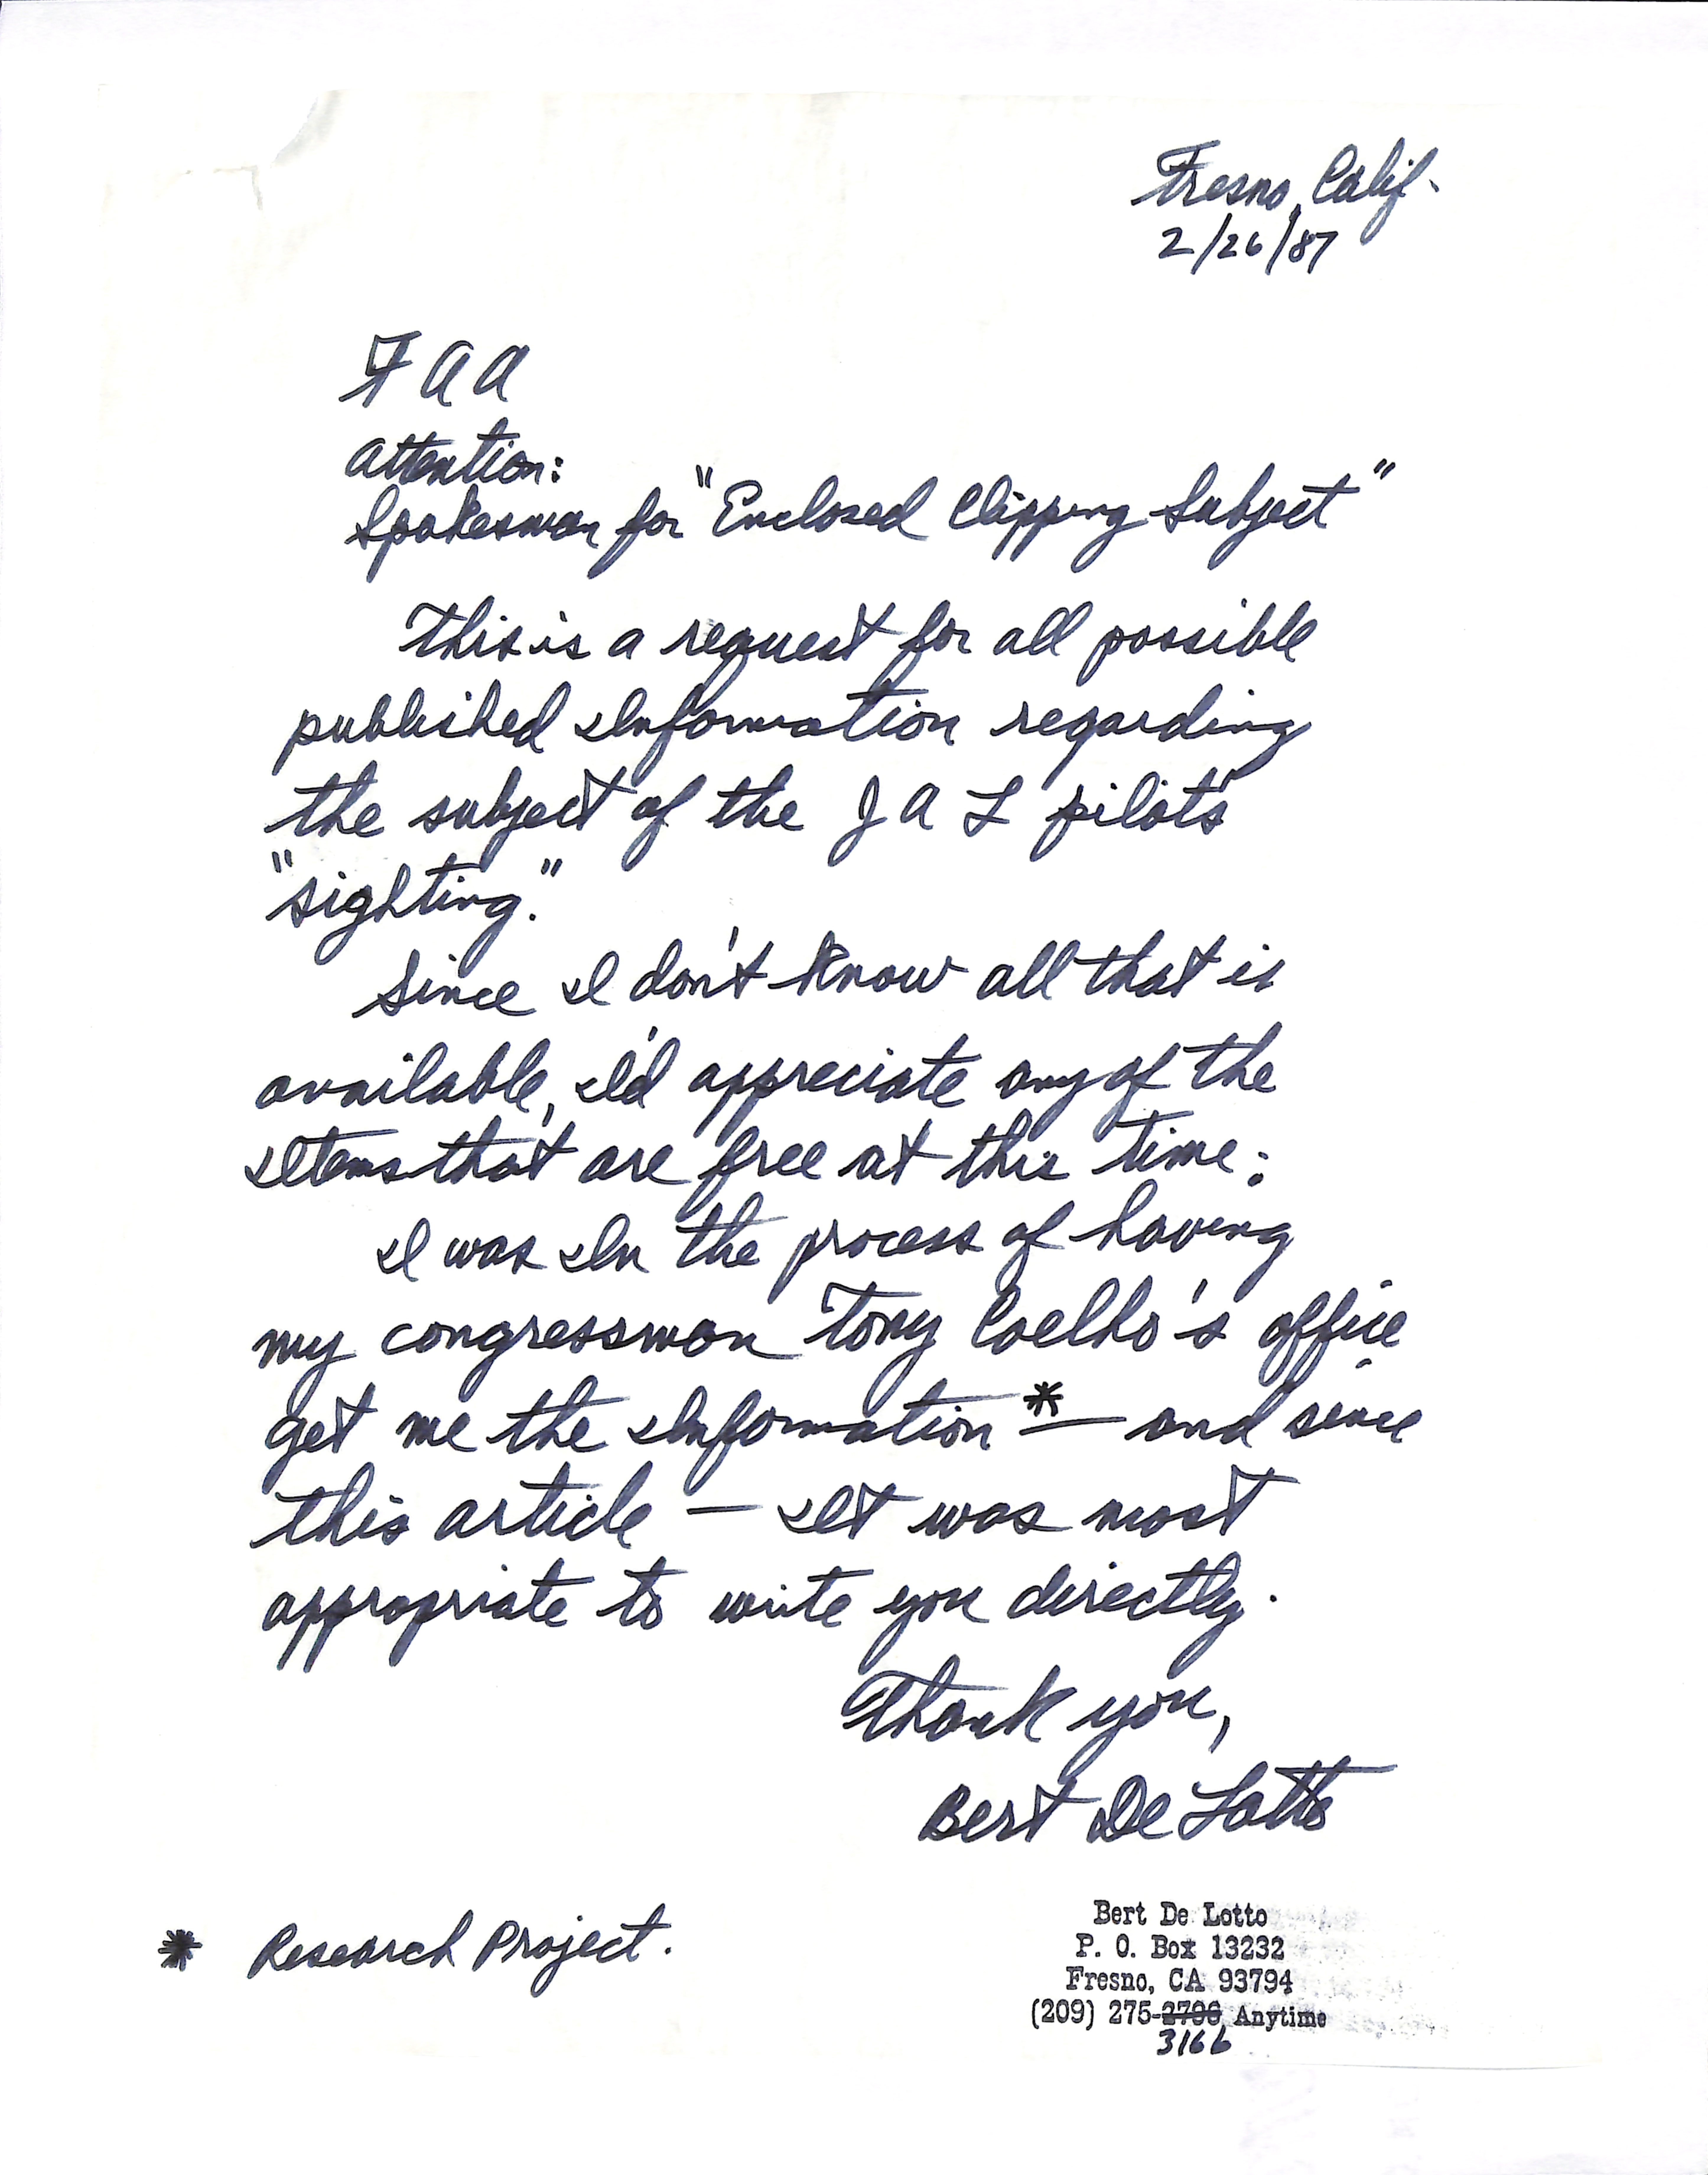 Fresno, Calif.
2/26/87
FAA
Attention:
Spokesman for "Enclosed Clipping Subject"
This is a request for all possible
published Information regarding
the subject of the JAL pilot's
"sighting."
Since I don't know all that is
available, I'd appreciate any of the
Items that are free at this time:
I was In the process of having
my congressman Tony Coelho's office
get me the Information * — and since
this article — It was most
appropriate to write you directly.
Thank you,
Bert De Lotto
* Research Project.
Bert De Lotto
P. O. Box 13232
Fresno, CA 93794
(209) 275-2790 Anytime
3166